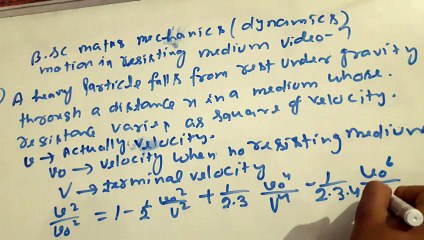 B.SC maths mechanics (dynamics)
motion in resisting medium video-7
A heavy Particle falls from rest under gravity
through a distance x in a medium whose
resistance varies as square of velocity.
u → Actually velocity.
u₀ → velocity when no resisting medium
V → terminal velocity
u²/u₀² = 1 - 1/2 u₀²/V² + 1/2.3 u₀⁴/V⁴ - 1/2.3.4 u₀⁶